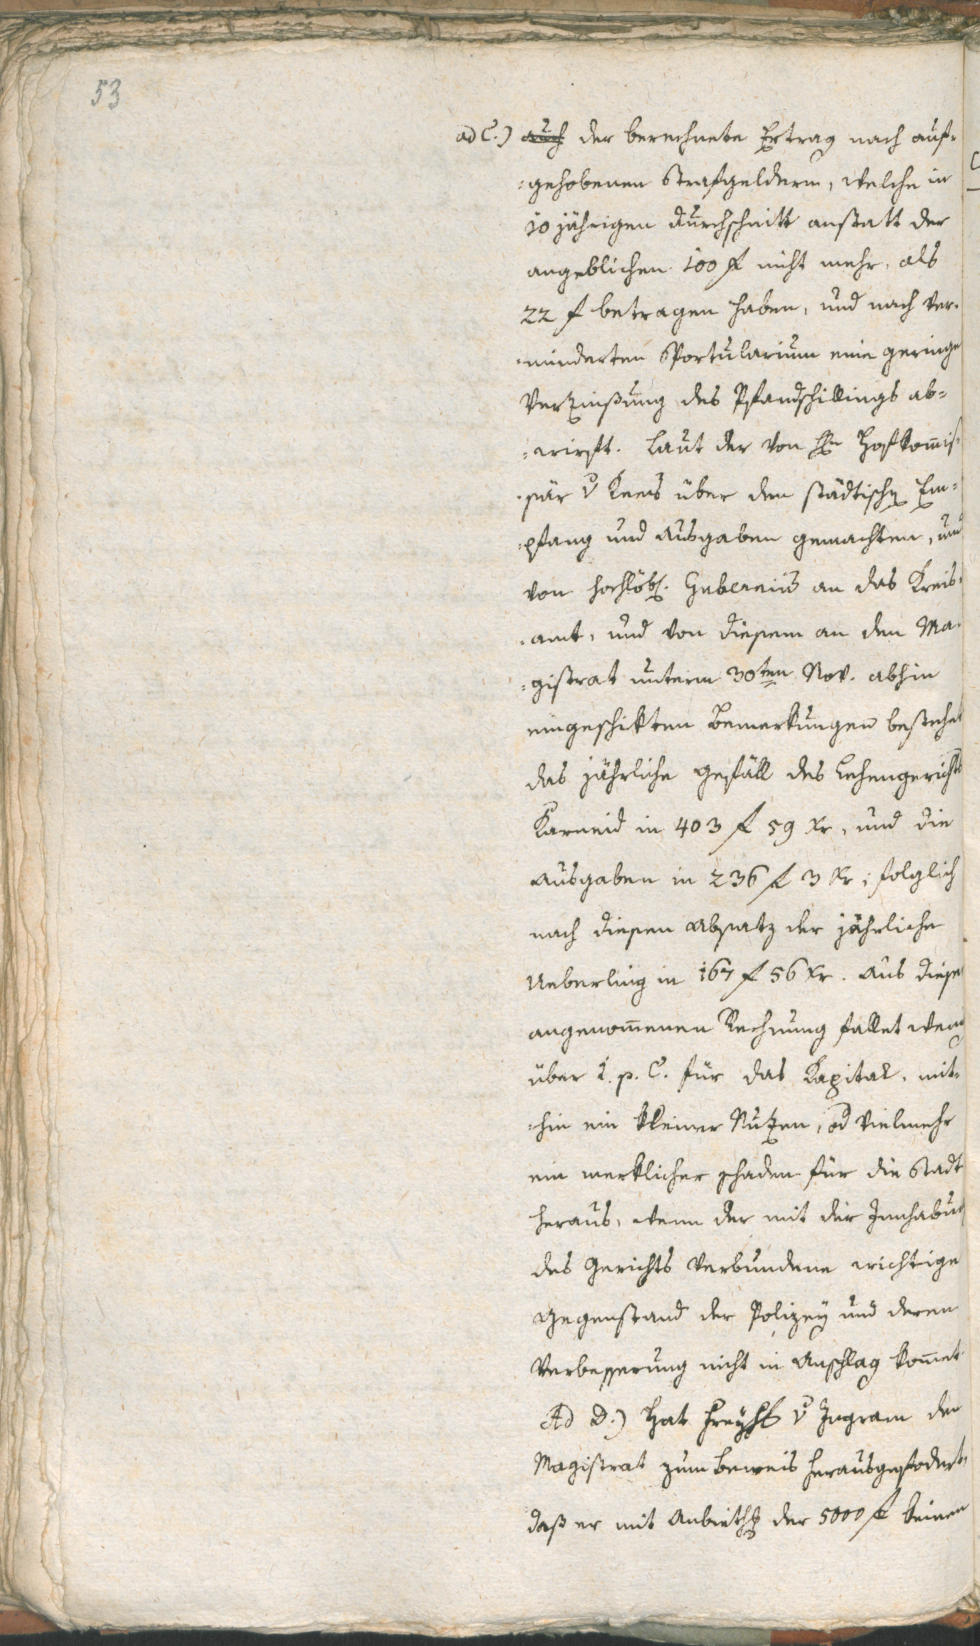 53
ad C.) auch der berechnete Ertrag nach auf-
-gehobenen Strafgeldern, welche in
10 jährigen Durchschnitt anstatt der
angeblichen 100 f nicht mehr, als
22 f betragen haben, und nach ver-
-minderten Sportularium eine geringe
Verzinßung des Pfandschillings ab-
-wirft. Laut der von Hn Hofkom̅is-
-sär v Kees über den städtischen Em-
-pfang und Ausgaben gemachten, und
von hochlöbl. Gubernio an das Kreis-
-amt, und von diesem an den Ma-
-gistrat unterm 30ten Nov. abhin
eingeschikten Bemerkungen bestehet
das jährliche Gefäll des Lehengerichts
Karneid in 403 f 59 Xr, und die
Ausgaben in 236 f 3 Xr; folglich
nach diesen Absatz der jährliche
Ueberling in 167 f 56 Xr. Aus dieser
angenom̅enen Rechnung fallet wenig
über 1. p. C. für das Kapital, mit-
-hin ein kleiner Nutzen, od vielmehr
ein merklicher Schaden für die Stadt
heraus, wenn der mit der Innhabung
des Gerichts verbundene wichtige
Gegenstand der Polizey und deren
Verbesserung nicht in Anschlag kom̅et
Ad D.) Hat Freyh v Ingram den
Magistrat zum Beweis herausgefodert,
daß er mit Anbiethg der 5000 f keinen